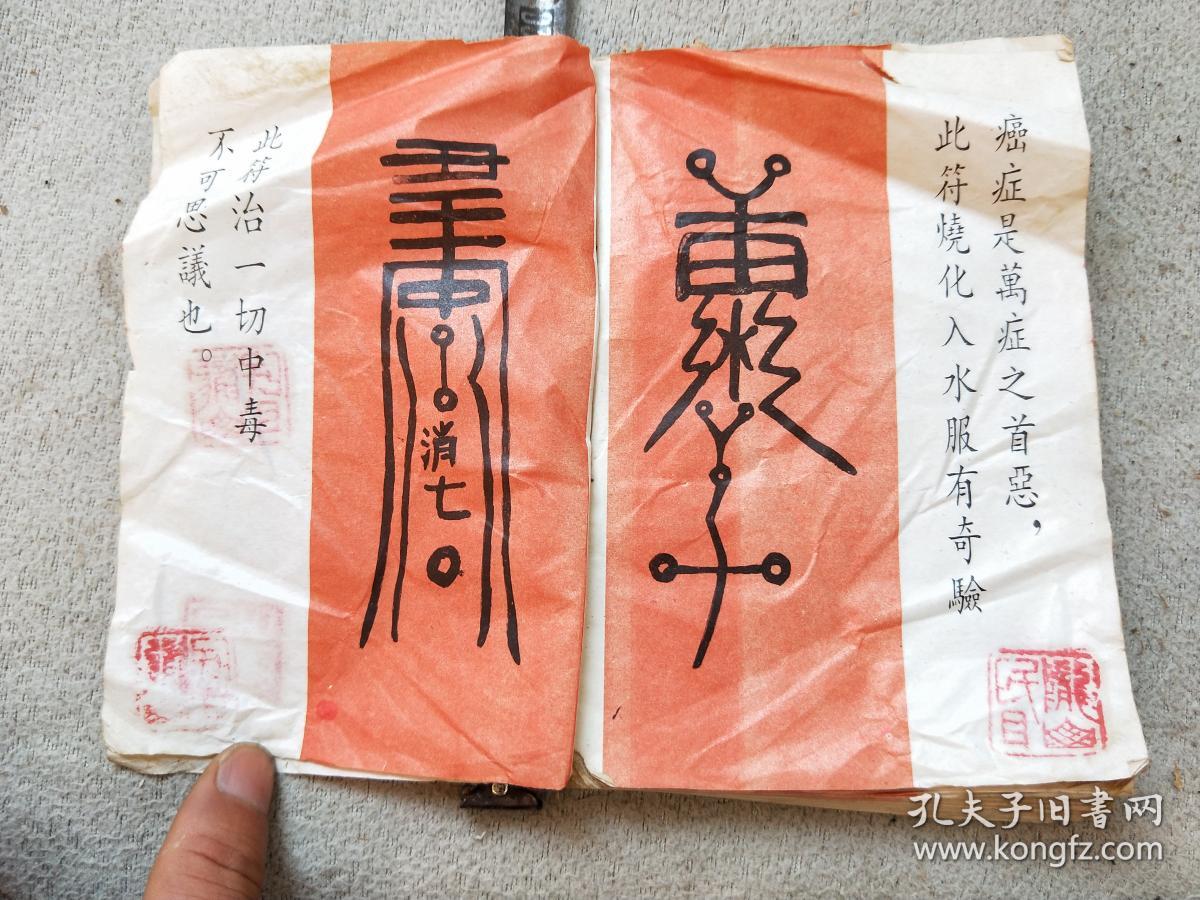 癌症是萬症之首惡，
此符燒化入水服有奇驗
消七
此符治一切中毒
不可思議也。
孔夫子旧书网
www.kongfz.com